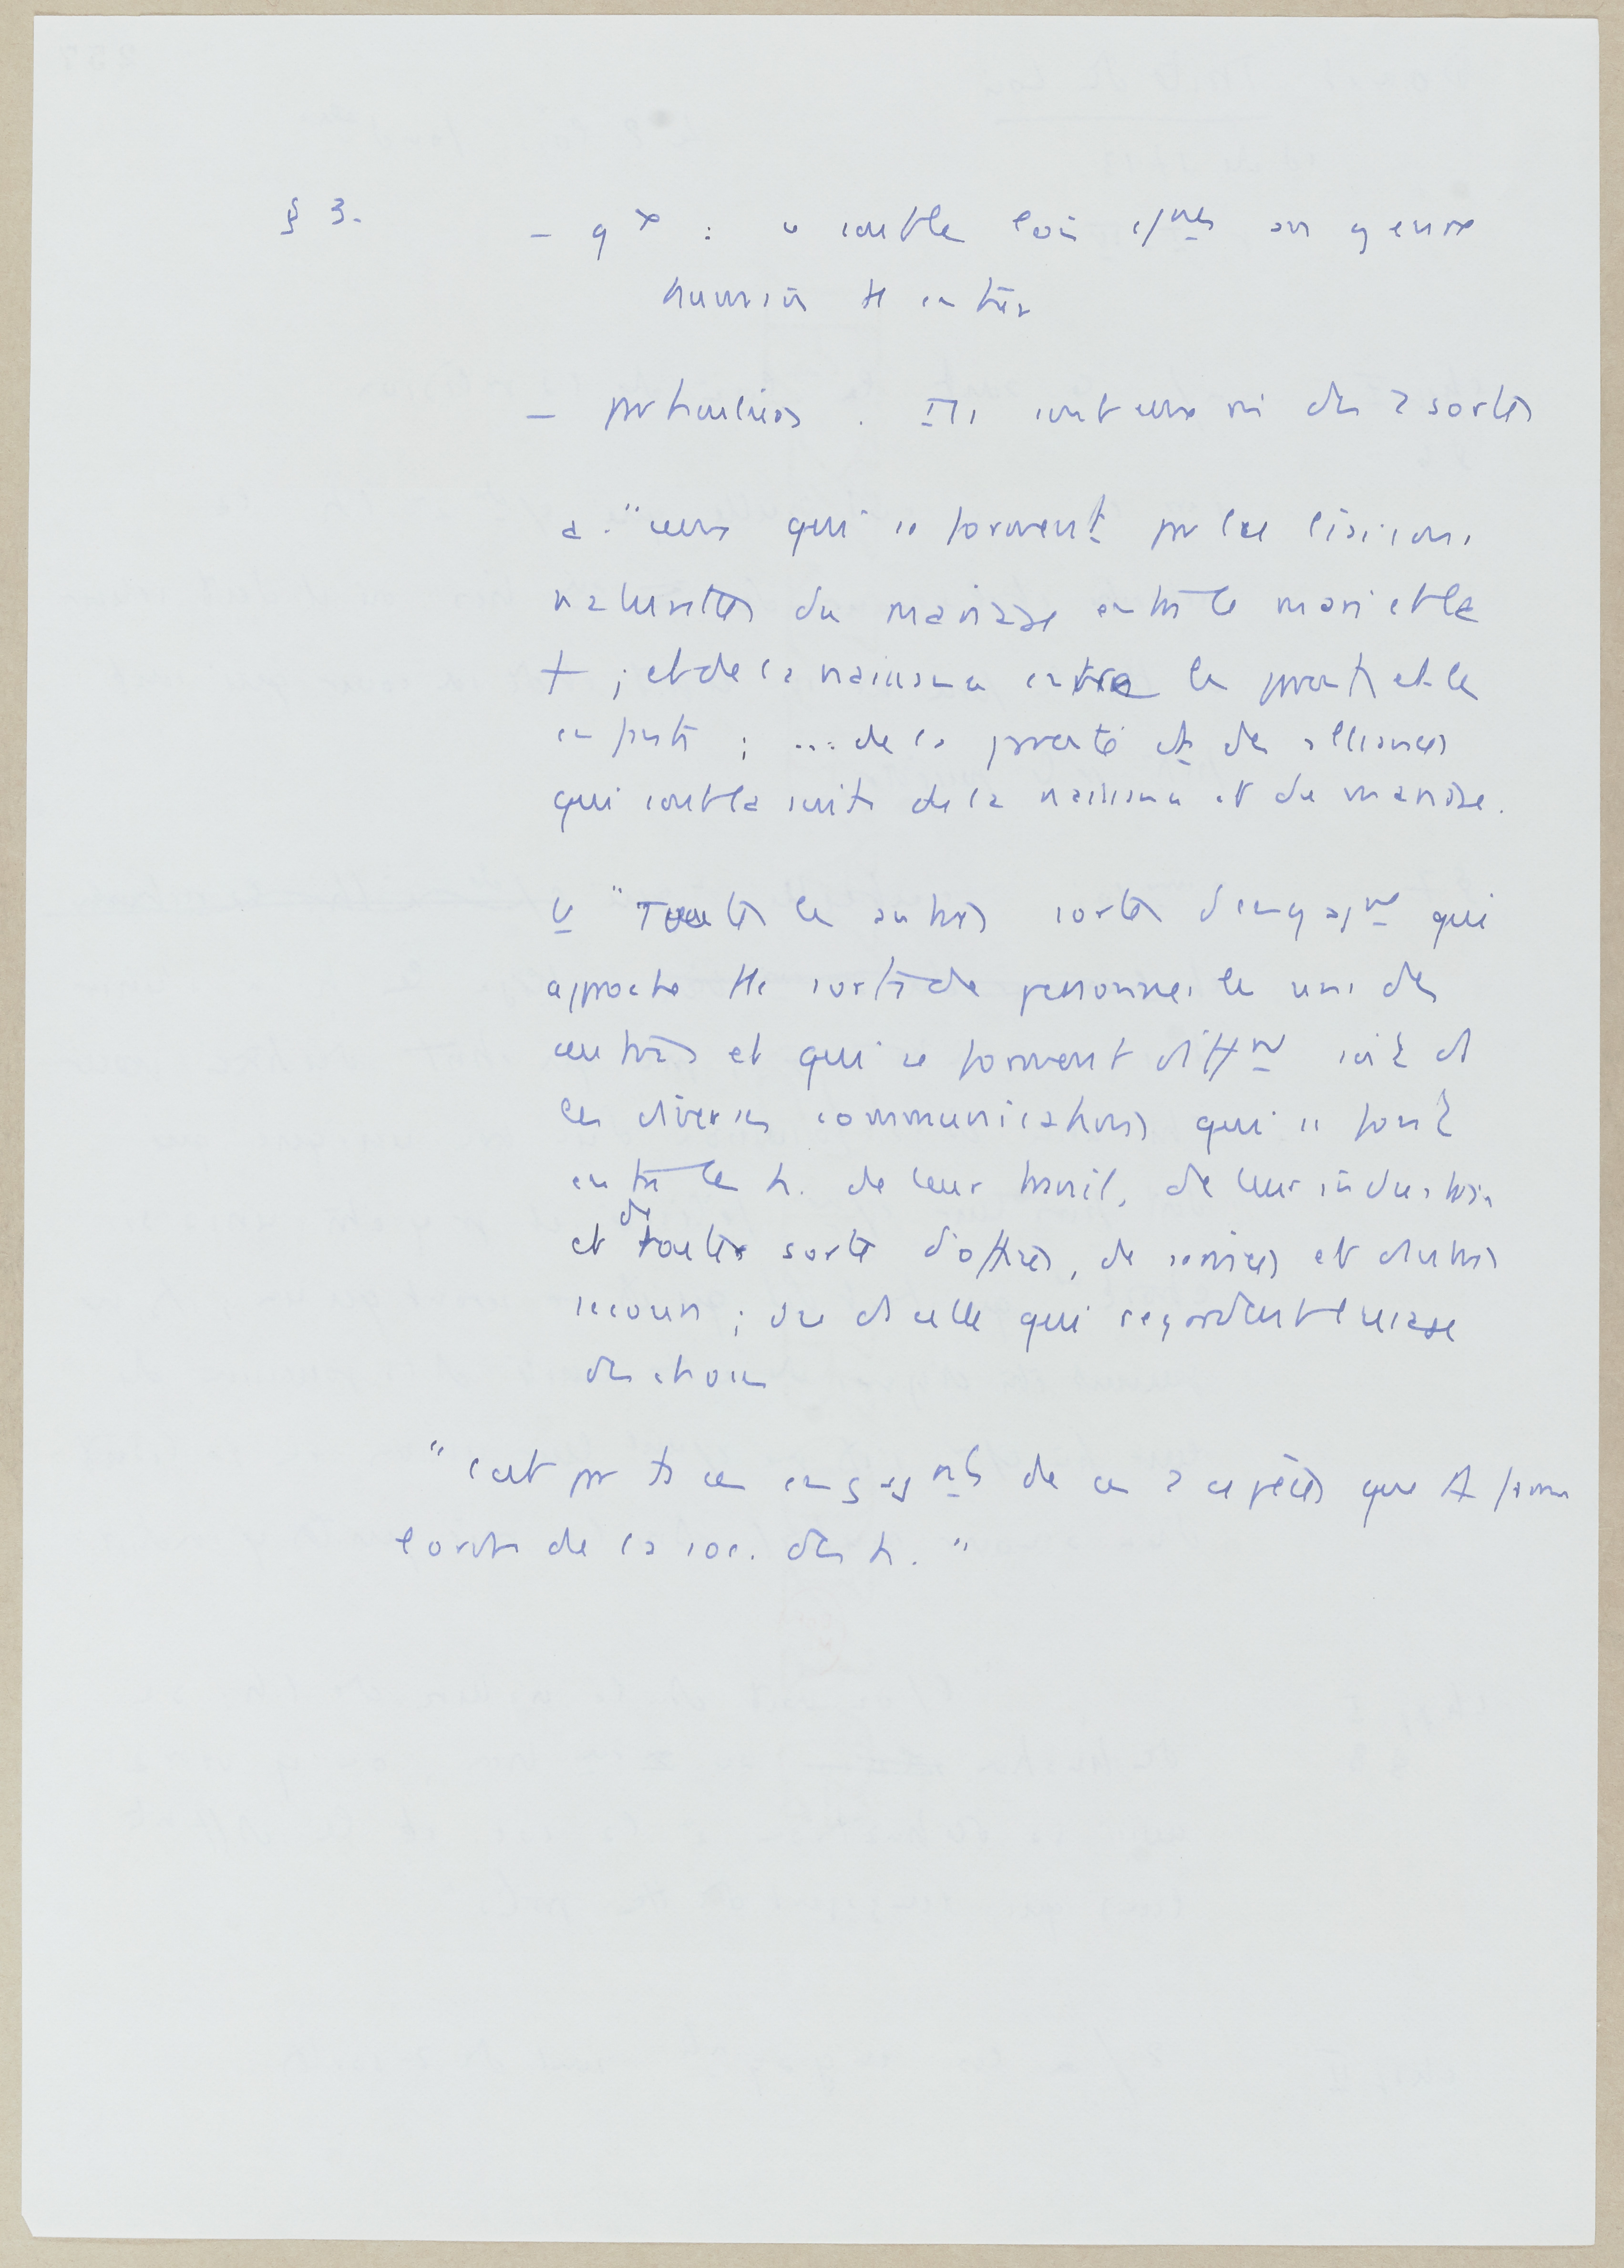 § 3.
– gx : ce sont les lois communes au genre
humain tt entier
– particulières. Ils sont eux mi des 2 sortes
a. "ceux qui se forment par les liaisons
naturelles du mariage entre le mari et la
f ; et de la naissance entre les parents et les
enfants ; ... de la parenté et des alliances
qui sont la suite de la naissance et du mariage.
b "Toutes les autres sortes d'engagmt qui
approche ttes sortes de personnes les uns des
autres et qui se forment difftmt soit ds
les diverses communications qui se font
entre les h. de leur travail, de leur industrie
et de toutes sortes d'offices, de services et d'autres
secours ; ou ds celles qui regardent l'usage
des choses
"C'est par ts ces engagmts de ces 2 espèces que D forme
l'ordre de la soc. des h."